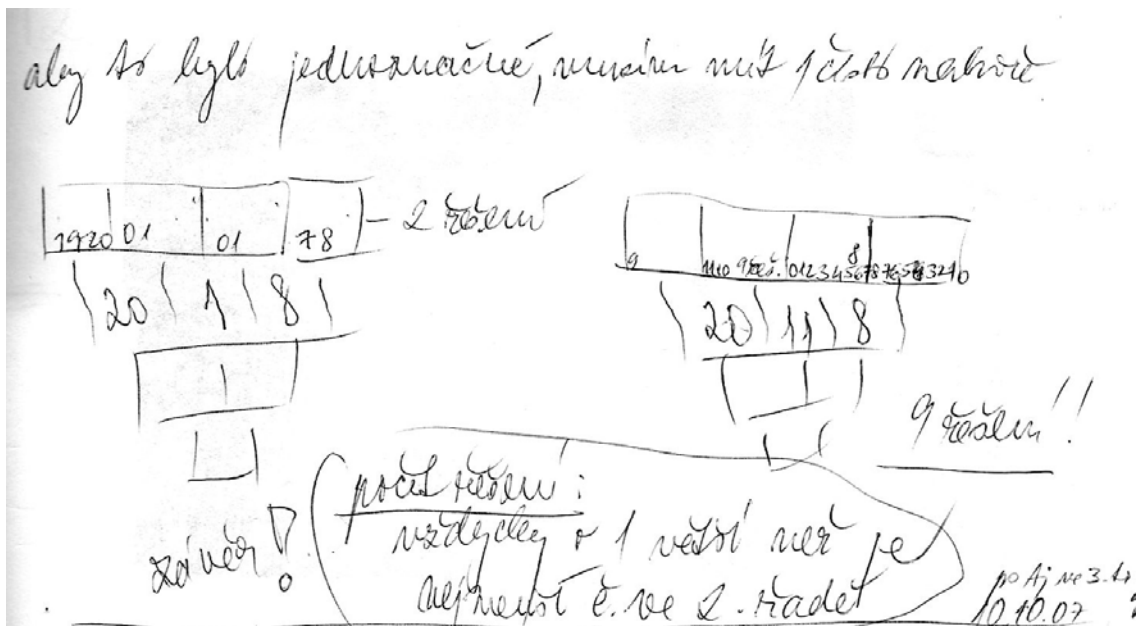 aby to bylo jednoznačné, musím mít 1 číslo nahoře
1920 01 01 78 – 2 řešení
20 1 8
9 012345678
20 11 8
9 řešení!
závěr!
počet řešení:
vždycky o 1 větší než je
nejmenší č. ve 2. řadě
po Aj ve 3. tř
10.10.07